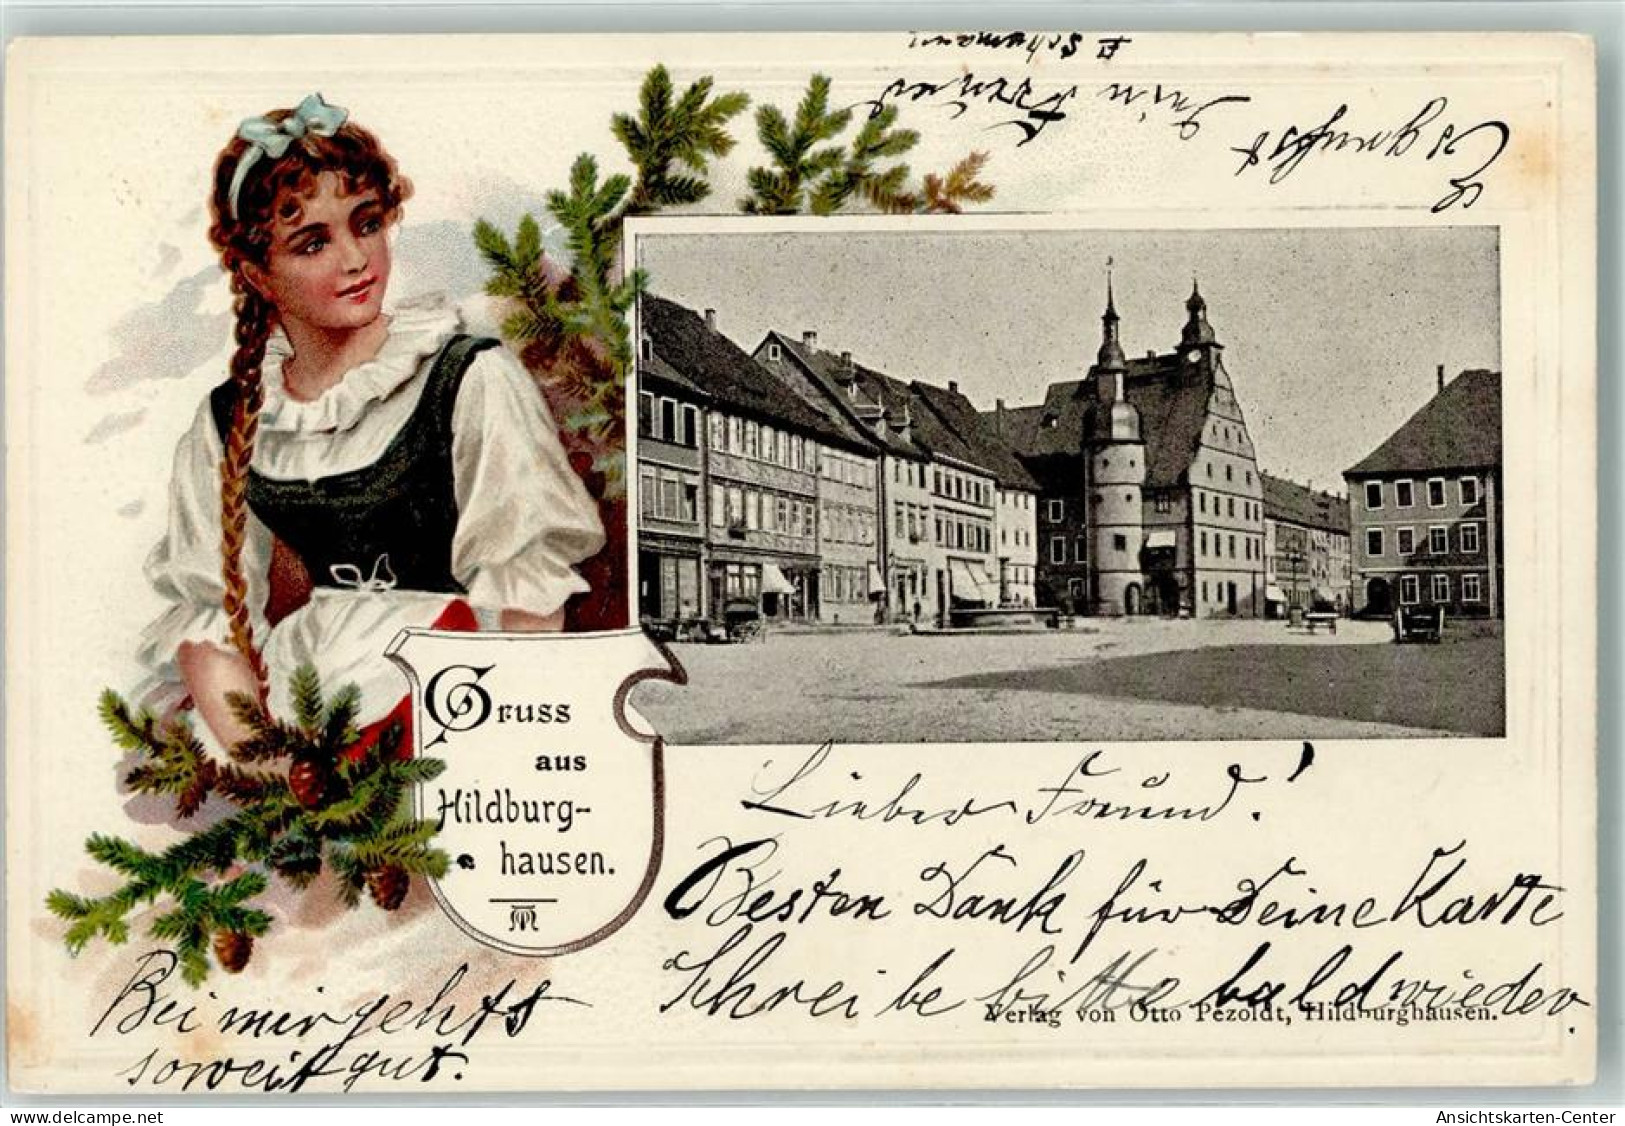 Gruss
aus
Hildburg-
hausen.
Lieber Freund!
Besten Dank für Deine Karte
Schreibe bitte bald wieder.
Verlag von Otto Pezoldt, Hildburghausen.
Bei mir gehts
soweit gut.
Es grüsst
Dein Freund
Ansichtskarten-Center